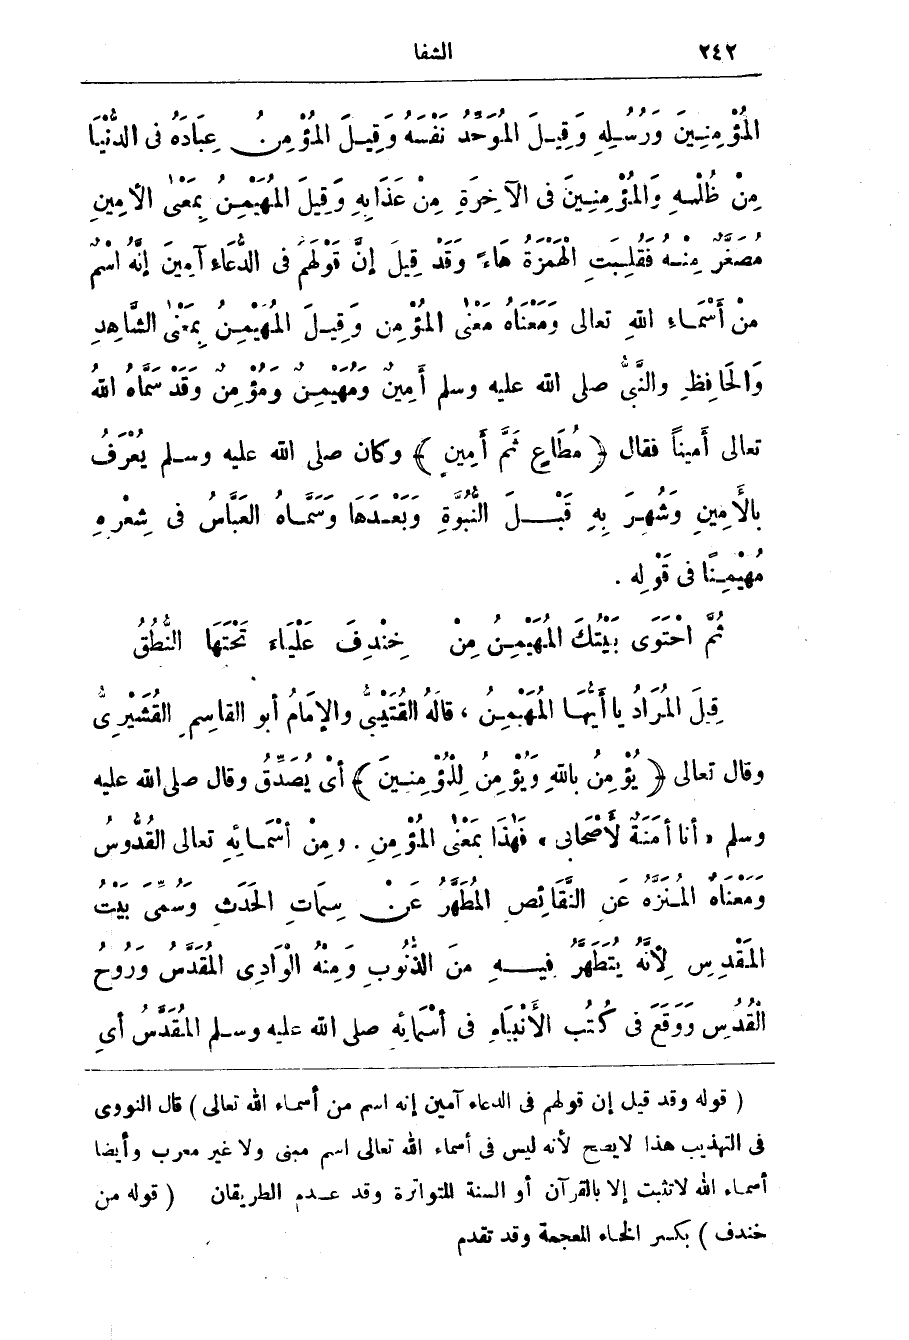 ٢٤٢ الشفا
المُؤْمِنِينَ وَرُسُلِهِ وَقِيلَ المُوَحِّدُ نَفْسَهُ وَقِيلَ المُؤْمِنُ عِبَادَهُ فى الدُّنْيَا
مِنْ ظُلْمِهِ وَالمُؤْمِنِينَ فى الآخِرَةِ مِنْ عَذَابِهِ وَقِيلَ المُهَيْمِنُ بِمَعْنَى الأمِينِ
مُصَغَّرٌ مِنْهُ فَقُلِبَتِ الْهَمْزَةُ هَاءً وَقَدْ قِيلَ إنَّ قَوْلَهُمْ فى الدُّعَاءِ آمِينَ إنَّهُ اسْمٌ
مِنْ أَسْمَاءِ اللهِ تعالى وَمَعْنَاهُ مَعْنَى المُؤْمِنِ وَقِيلَ المُهَيْمِنُ بِمَعْنَى الشَّاهِدِ
وَالحَافِظِ والنَّبىُّ صلى الله عليه وسلم أَمِينٌ وَمُهَيْمِنٌ ومُؤْمِنٌ وَقَدْ سَمَّاهُ اللهُ
تعالى أَمِيناً فقال ﴿ مُطَاعٍ ثَمَّ أَمِينٍ ﴾ وكان صلى الله عليه وسلم يُعْرَفُ
بالأَمِينِ وَشُهِرَ بِهِ قَبْلَ النُّبُوَّةِ وَبَعْدَهَا وَسَمَّاهُ العَبَّاسُ فى شِعْرِهِ
مُهَيْمِنًا فى قَوْلِهِ .
ثُمَّ احْتَوَى بَيْتُكَ المُهَيْمِنُ مِنْ خِنْدِفَ عَلْيَاءَ تَحْتَهَا النُّطُقُ
قِيلَ المُرَادُ يا أَيُّهَا المُهَيْمِنُ ، قالَهُ القُتَيْبىُّ والإمَامُ أبو القاسِمِ القُشَيْرِىُّ
وقال تعالى ﴿ يُؤْمِنُ بِاللهِ وَيُؤْمِنُ لِلْمُؤْمِنِينَ ﴾ أىْ يُصَدِّقُ وقال صلى الله عليه
وسلم « أنا أمَنَةٌ لأَصْحَابى » فَهٰذَا بِمَعْنَى المُؤْمِنِ . ومِنْ أسْمَائِهِ تعالى القُدُّوسُ
وَمَعْنَاهُ المُنَزَّهُ عَنِ النَّقَائِصِ المُطَهَّرُ عَنْ سِمَاتِ الحَدَثِ وَسُمِّىَ بَيْتُ
المَقْدِسِ لِأَنَّهُ يُتَطَهَّرُ فِيهِ مِنَ الذُّنُوبِ وَمِنْهُ الْوَادِى المُقَدَّسُ وَرُوحُ
الْقُدُسِ وَوَقَعَ فى كُتُبِ الأَنْبِيَاءِ فى أَسْمَائِهِ صلى الله عليه وسلم المُقَدَّسُ أىِ
( قوله وقد قيل إن قولهم فى الدعاء آمين إنه اسم من أسماء الله تعالى ) قال النووى
فى التهذيب هذا لايصح لأنه ليس فى أسماء الله تعالى اسم مبنى ولا غير معرب وأيضا
أسماء الله لاتثبت إلا بالقرآن أو السنة المتواترة وقد عدم الطريقان ( قوله من
خندف ) بكسر الخاء المعجمة وقد تقدم